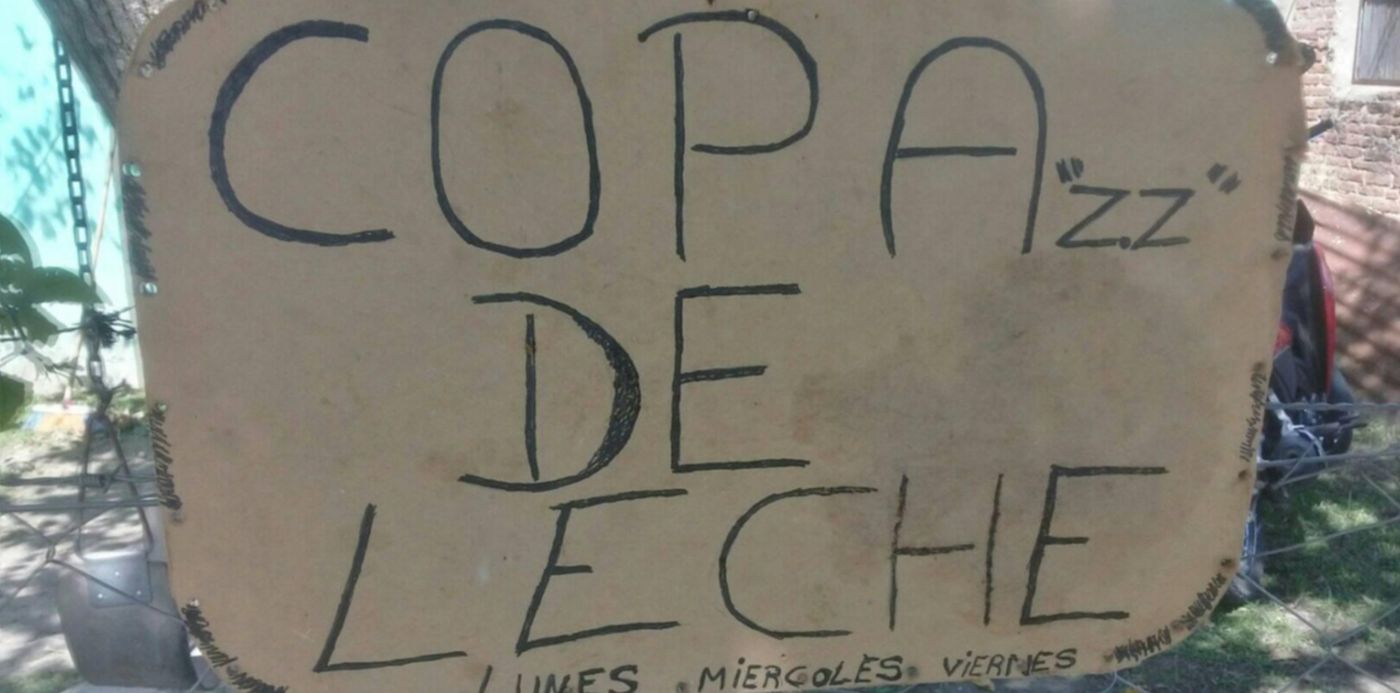 COPA "Z.Z"
DE
LECHE
LUNES. MIERCOLES. VIERNES